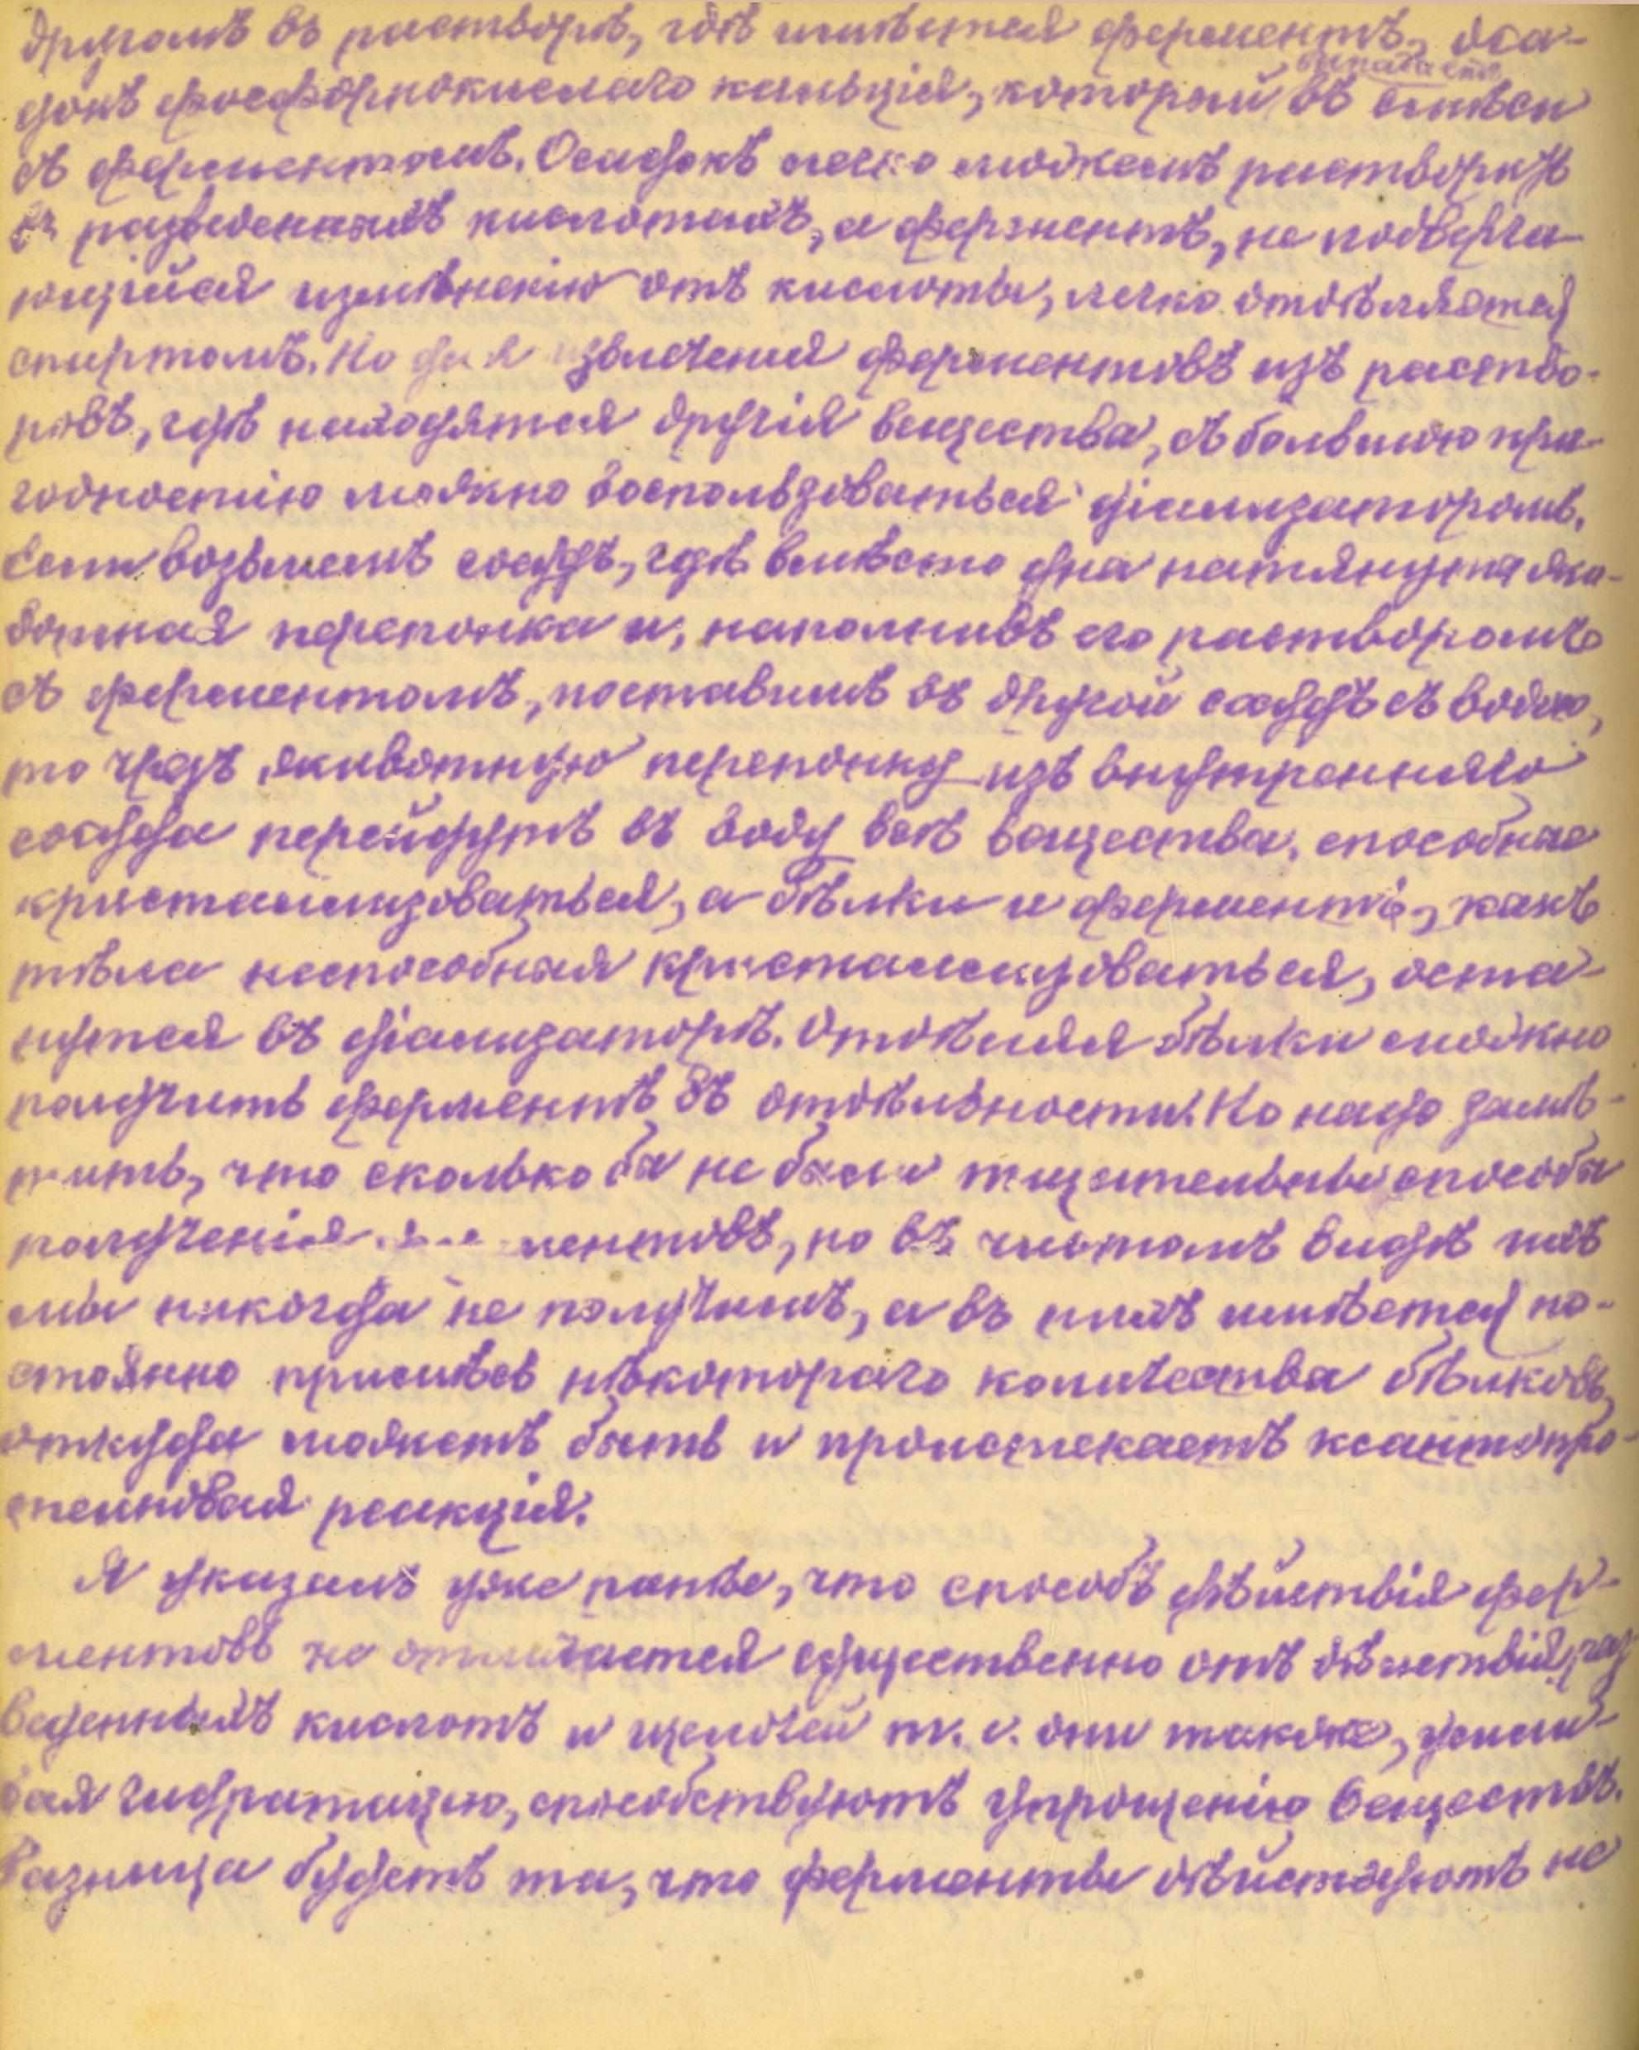 другомъ въ растворѣ, гдѣ имѣется ферментъ, оса-
докъ фосфорнокислаго кальція, который выпадаетъ въ смѣси
съ ферментомъ. Осадокъ легко можемъ растворить
въ разведенныхъ кислотахъ, а ферментъ, не подверга-
ющійся измѣненію отъ кислоты, легко отдѣляется
спиртомъ. Но для извлеченія ферментовъ изъ раство-
ровъ, гдѣ находятся другія вещества, съ большою при-
годностію можно воспользоваться діализаторомъ.
Если возьмемъ сосудъ, гдѣ вмѣсто дна натянута жи-
вотная перепонка и, наполнивъ его растворомъ
съ ферментомъ, поставимъ въ другой сосудъ съ водою,
то чрезъ животную перепонку изъ внутренняго
сосуда перейдутъ въ воду всѣ вещества, способные
кристаллизоваться, а бѣлки и ферментъ, какъ
тѣла неспособныя кристаллизоваться, оста-
нутся въ діализаторѣ. Отдѣляя бѣлки можно
получить ферментъ въ отдѣльности. Но надо замѣ-
тить, что сколько бы не были тщательны способы
полученія ферментовъ, но въ чистомъ видѣ ихъ
мы никогда не получимъ, а въ нихъ имѣется по-
стоянно примѣсь нѣкотораго количества бѣлковъ,
откуда можетъ быть и проистекаетъ ксантопро-
теиновая реакція.
Я указалъ уже ранѣе, что способъ дѣйствія фер-
ментовъ не отличается существенно отъ дѣйствія раз
веденныхъ кислотъ и щелочей т. е. они также, усили-
вая гидратацію, способствуютъ упрощенію веществъ.
Разница будетъ та, что ферменты дѣйствуютъ не